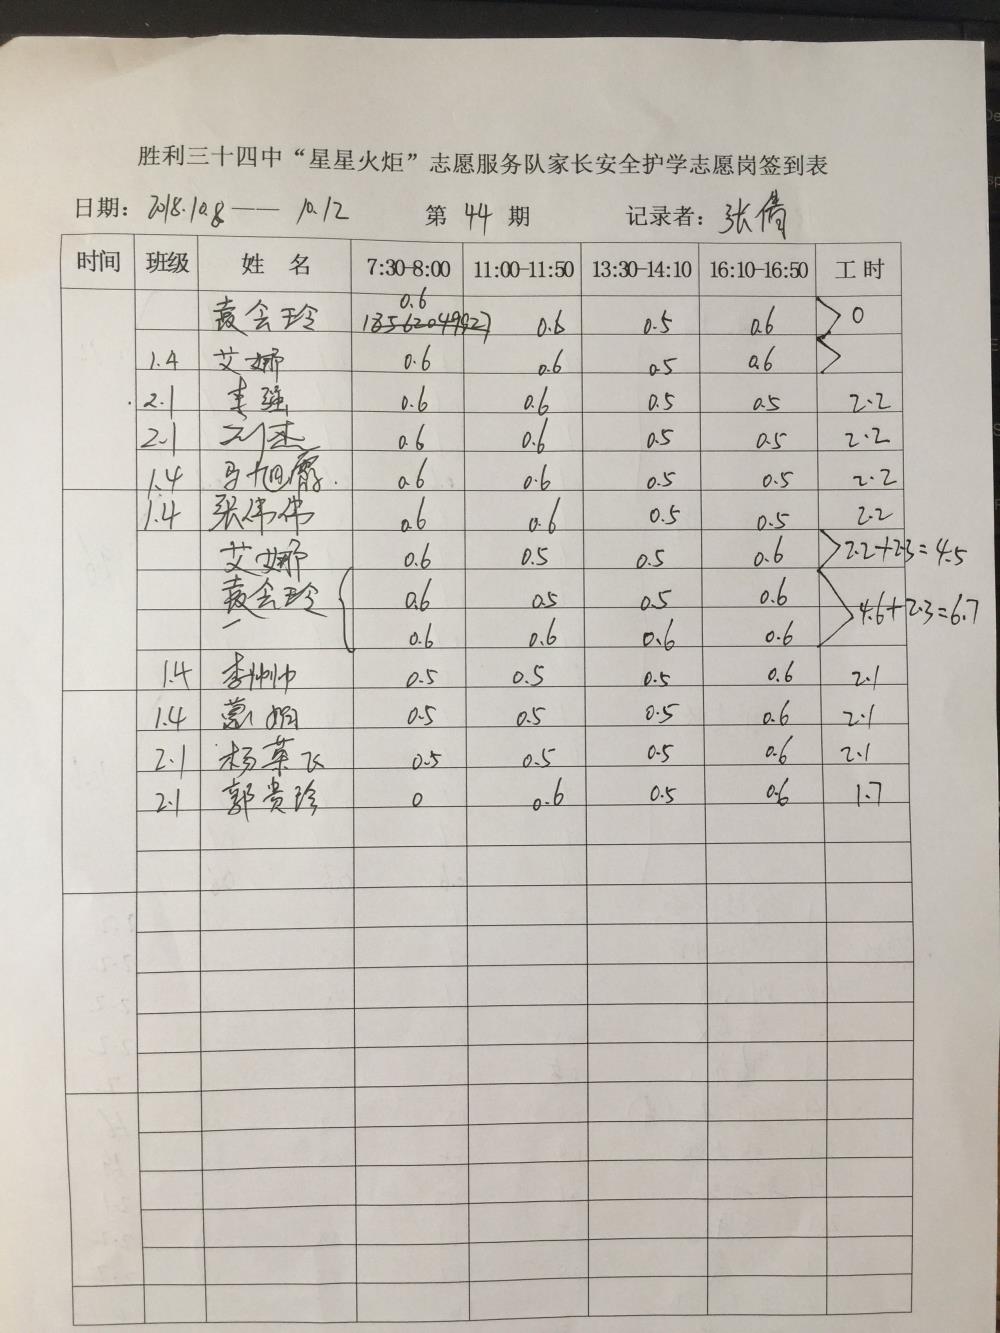 胜利三十四中“星星火炬”志愿服务队家长安全护学志愿岗签到表
日期: 2018.10.8 —— 10.12 第 44 期 记录者: 张倩
时间 班级 姓 名 7:30-8:00 11:00-11:50 13:30-14:10 16:10-16:50 工时
0.6
袁会玲 0.6 0.5 0.6 0
1.4 艾娜 0.6 0.6 0.5 0.6
2.1 李强 0.6 0.6 0.5 0.5 2.2
2.1 刘杰 0.6 0.6 0.5 0.5 2.2
1.4 马旭霞 0.6 0.6 0.5 0.5 2.2
1.4 张伟伟 0.6 0.6 0.5 0.5 2.2
艾娜 0.6 0.5 0.5 0.6 2.2+2.3=4.5
袁会玲 0.6 0.5 0.5 0.6 4.6+2.3=6.7
0.6 0.6 0.6 0.6
1.4 李帅帅 0.5 0.5 0.5 0.6 2.1
1.4 娟 0.5 0.5 0.5 0.6 2.1
2.1 杨英飞 0.5 0.5 0.5 0.6 2.1
2.1 郭贵珍 0 0.6 0.5 0.6 1.7